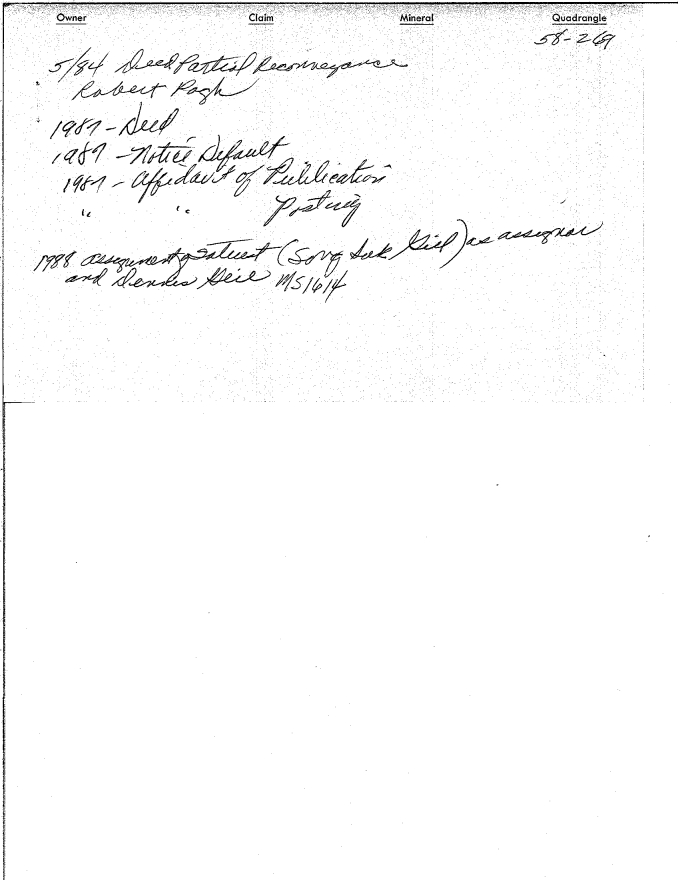 Owner Claim Mineral Quadrangle
58-269
5/84 Deed Partial Reconveyance
Robert Pagh
1987 - Deed
1987 - Notice Default
1987 - Affidavit of Publication
" " Posting
1988 assignment (Song Suk) as assignor
and Dennis MS1614